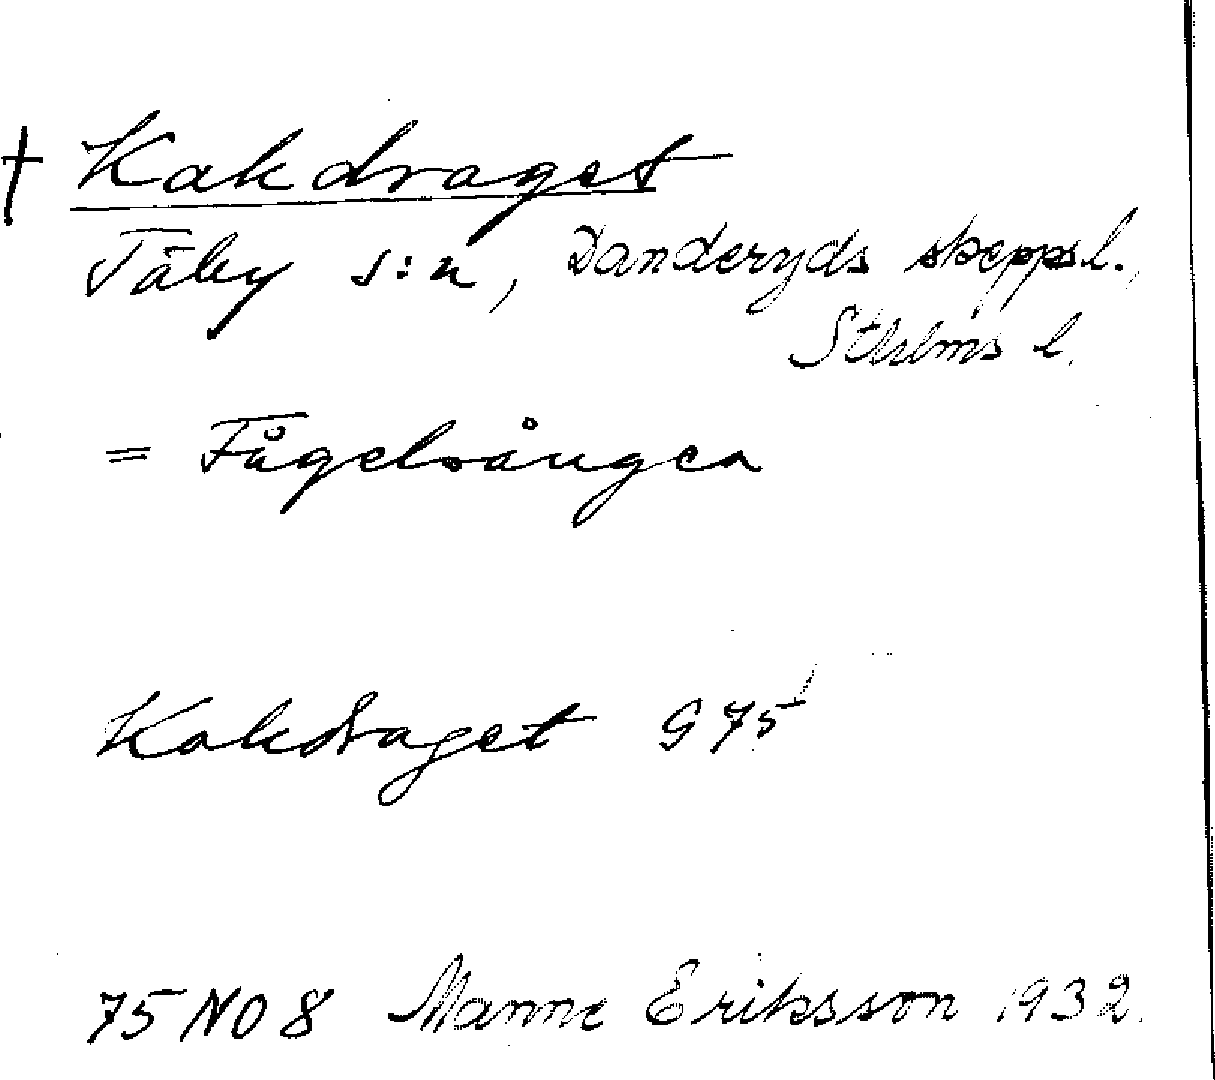 † Kakdraget
Täby s:n, Danderyds skeppsl.,
Sthlms l.
= Fågelsången
Kakdraget G 75
75 NO 8 Manne Eriksson 1932.